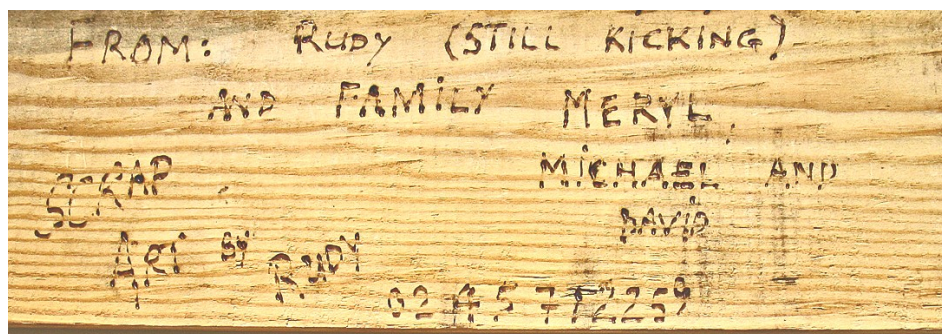 FROM: RUDY (STILL KICKING)
AND FAMiLY MERYL
MiCHAEL AND
DAViD
SCRAP
ART BY
RUDY